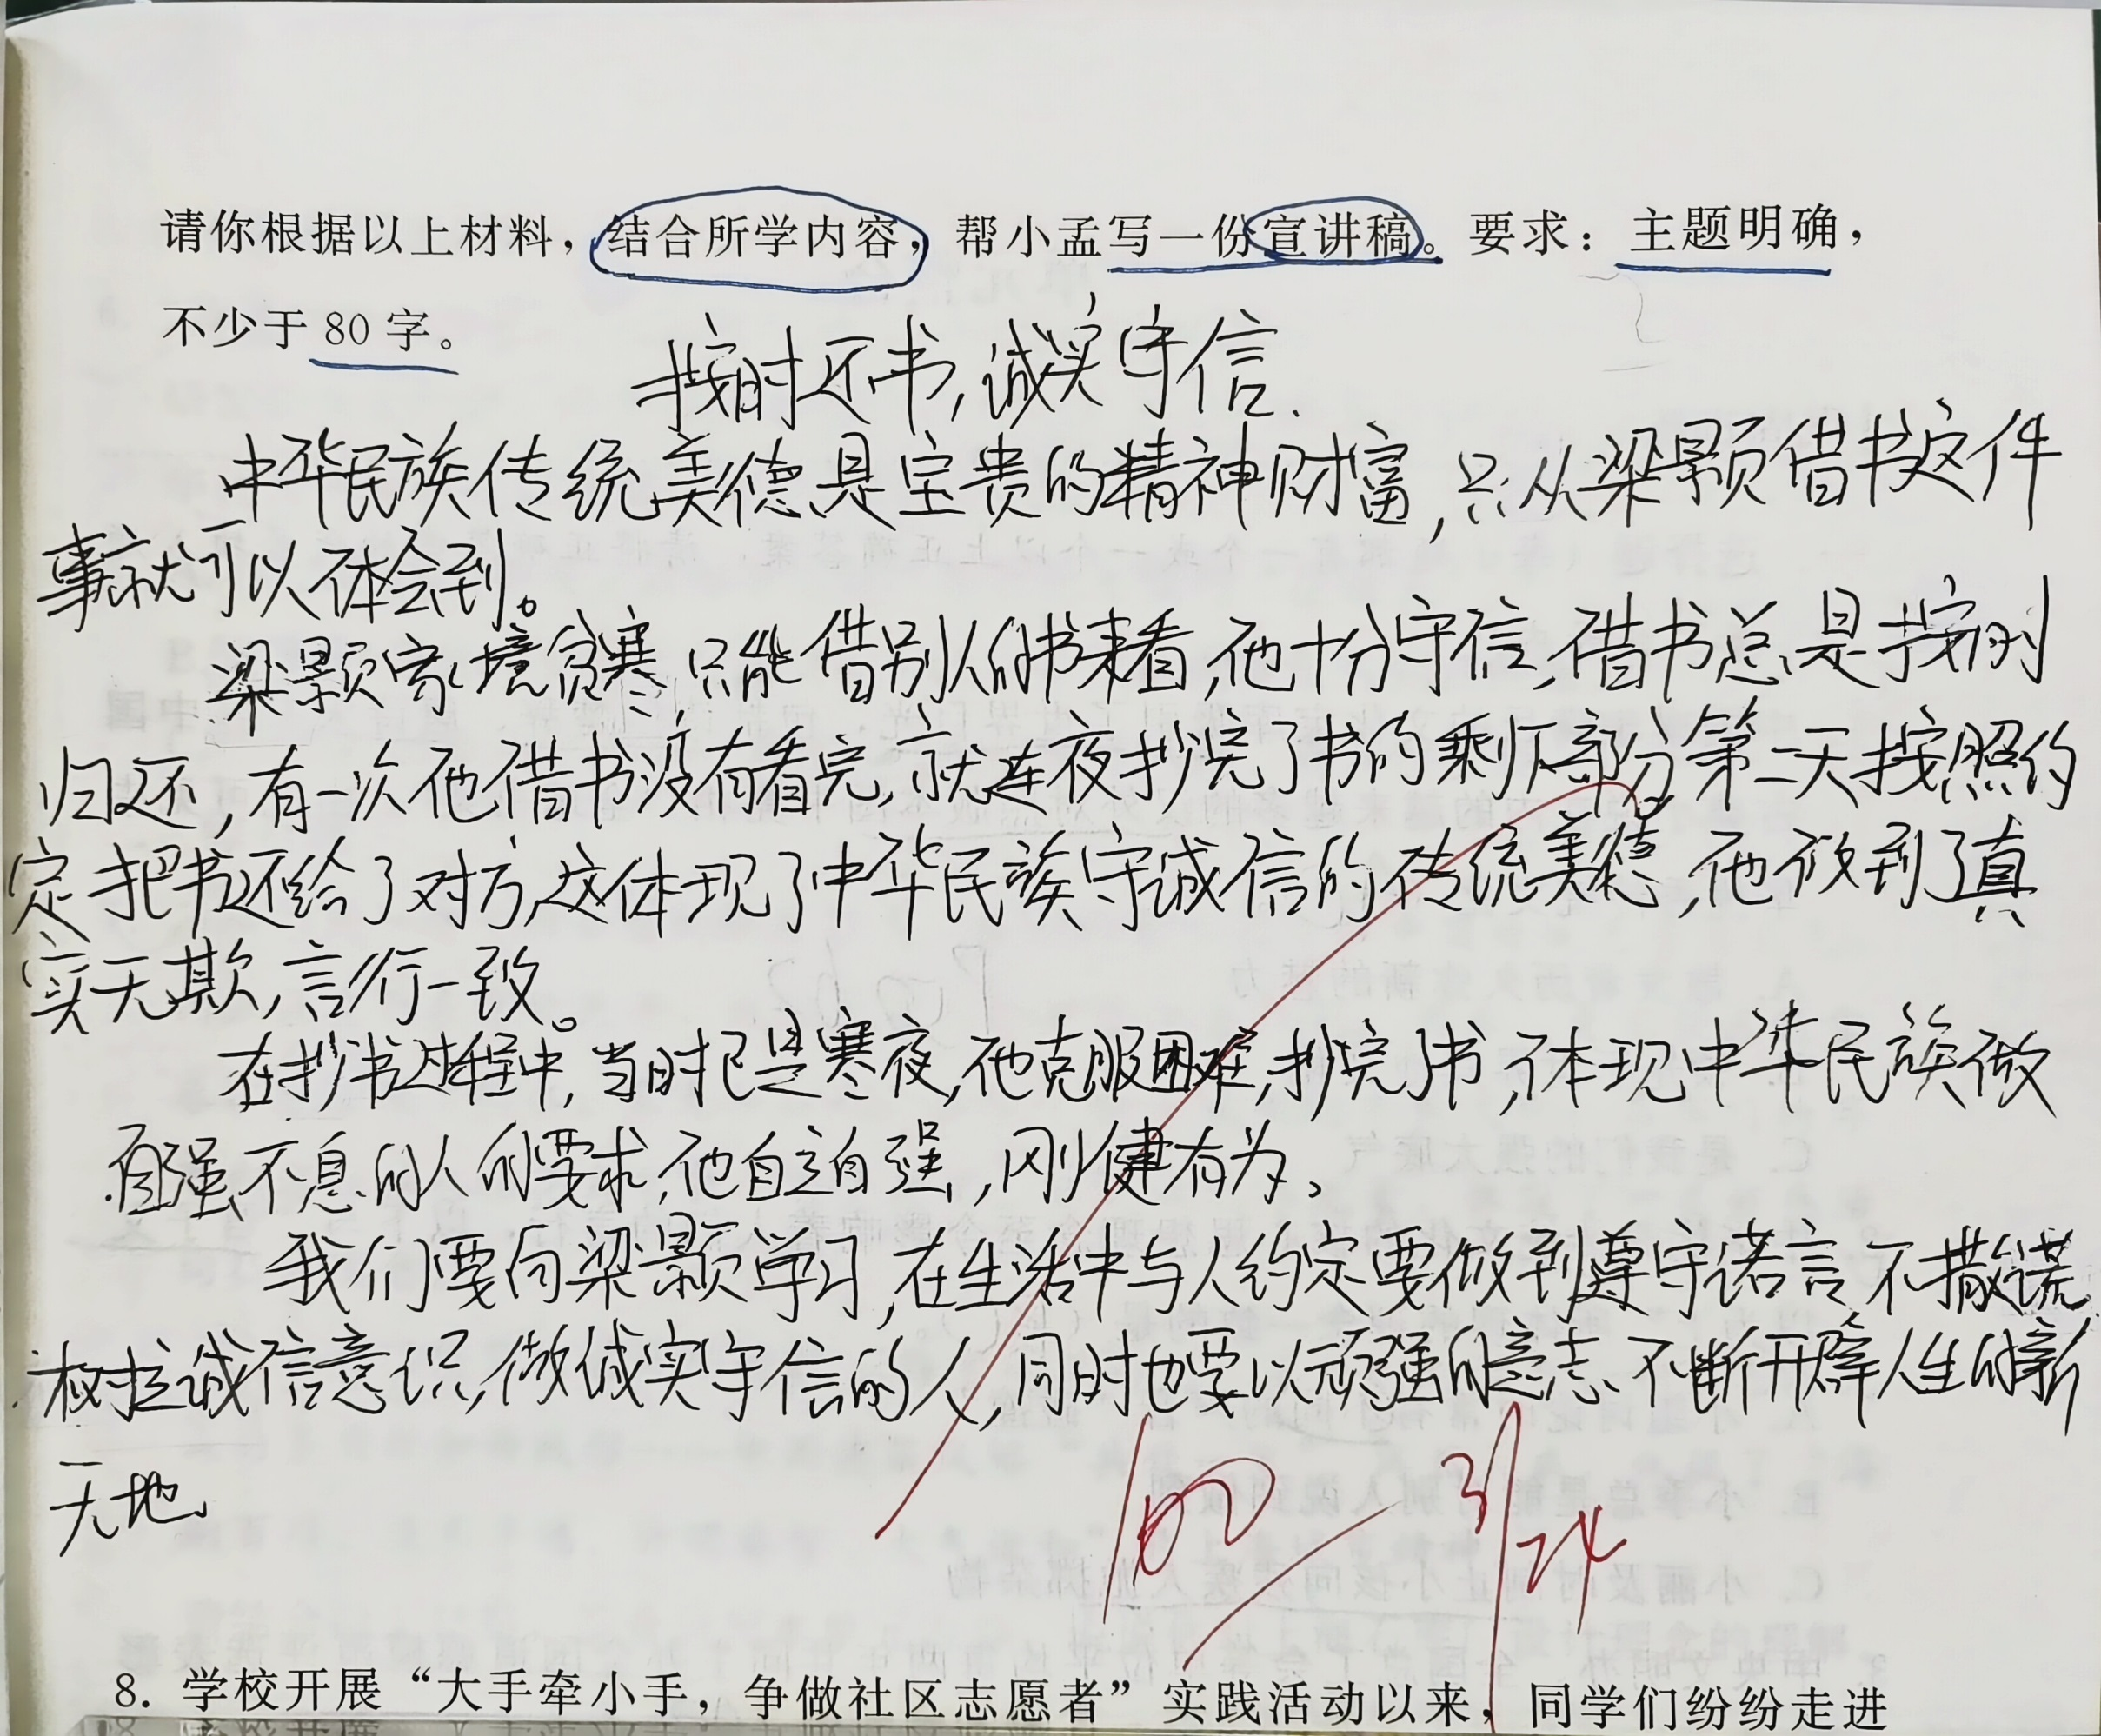 请你根据以上材料，结合所学内容，帮小孟写一份宣讲稿。要求：主题明确，
不少于 80 字。
按时还书,诚实守信.
中华民族传统美德是宝贵的精神财富,只从梁颢借书这件
事就可以体会到。
梁颢家境贫寒,只能借别人的书来看,他十分守信,借书总是按时
归还,有一次他借书没有看完,就连夜抄完了书的剩下部分。第二天按照约
定把书还给了对方,这体现了中华民族守诚信的传统美德,他做到了真
实无欺,言行一致。
在抄书过程中,当时已是寒夜,他克服困难,抄完了书,体现中华民族做
自强不息的人的要求,他自立自强,刚健有为。
我们要向梁颢学习,在生活中与人约定要做到遵守诺言,不撒谎,
树立诚信意识,做诚实守信的人,同时也要以顽强的意志、不断开辟人生的新
天地。
100 3/24
8. 学校开展“大手牵小手，争做社区志愿者”实践活动以来，同学们纷纷走进